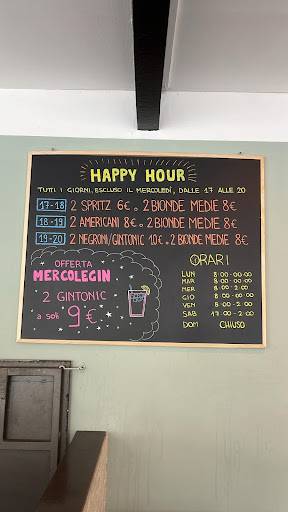 HAPPY HOUR
TUTTI I GIORNI, ESCLUSO IL MERCOLEDÍ, DALLE 17 ALLE 20
17-18 2 SPRITZ 6€ o 2 BIONDE MEDIE 8€
18-19 2 AMERICANI 8€ o 2 BIONDE MEDIE 8€
19-20 2 NEGRONI/GINTONIC 10€ o 2 BIONDE MEDIE 8€
OFFERTA
MERCOLEGIN
2 GINTONIC
a soli 9€
ORARI
LUN 8:00-00:00
MAR 8:00-00:00
MER 8:00-2:00
GIO 8:00-00:00
VEN 8:00-2:00
SAB 17:00-2:00
DOM CHIUSO